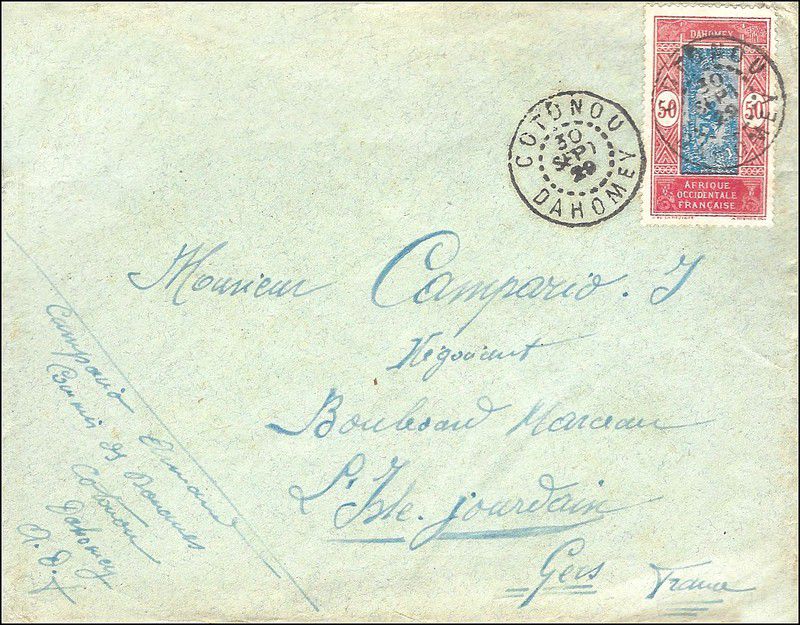 DAHOMEY
50 50
AFRIQUE
OCCIDENTALE
FRANÇAISE
COTONOU
30
SEPT
29
DAHOMEY
Monsieur Campario. J
Négociant
Boulevard Marceau
L'Isle-jourdain
Gers France
Campario
Commis des Douanes
Cotonou
Dahomey
A.O.F